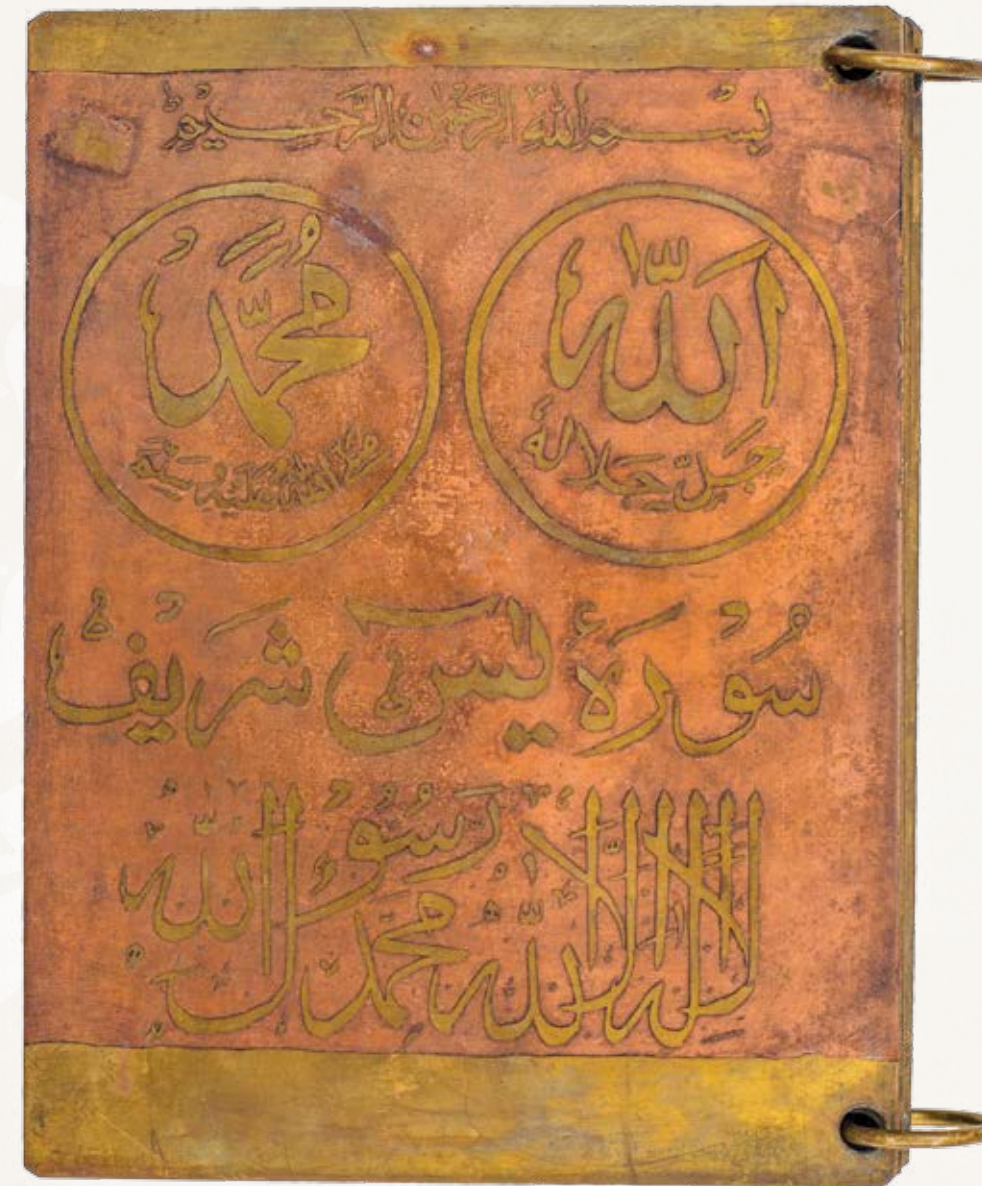 بِسْمِ اللهِ الرَّحْمٰنِ الرَّحِيْمِ
اَللّٰهُ
جَلَّ جَلَالُهُ
مُحَمَّدْ
صَلَّى اللهُ عَلَيْهِ وَسَلَّمَ
سُوْرَةُ يٰسٓ شَرِيْفْ
لَا اِلٰهَ اِلَّا اللّٰهُ مُحَمَّدٌ رَسُوْلُ اللّٰهِ